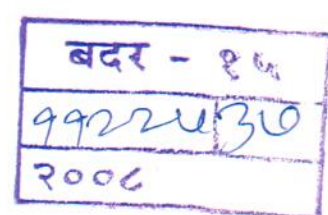 बदर - १५
११२२५|३७
२००८